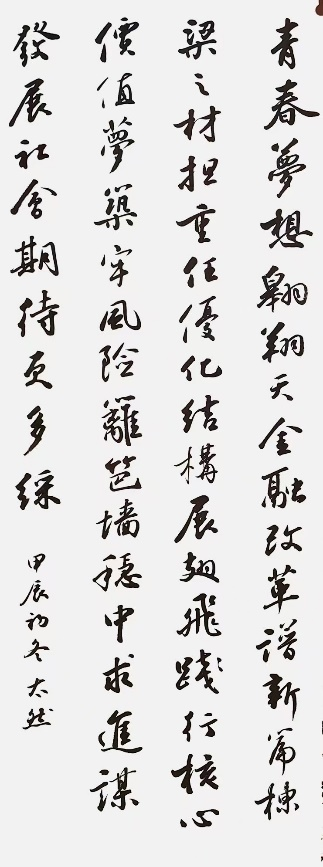 青春夢想翱翔天金融改革譜新篇棟
梁之材担重任優化結構展翅飛踐行核心
價值夢築牢風險籬笆墙穩中求進謀
發展社會期待更多綵
甲辰初冬大然